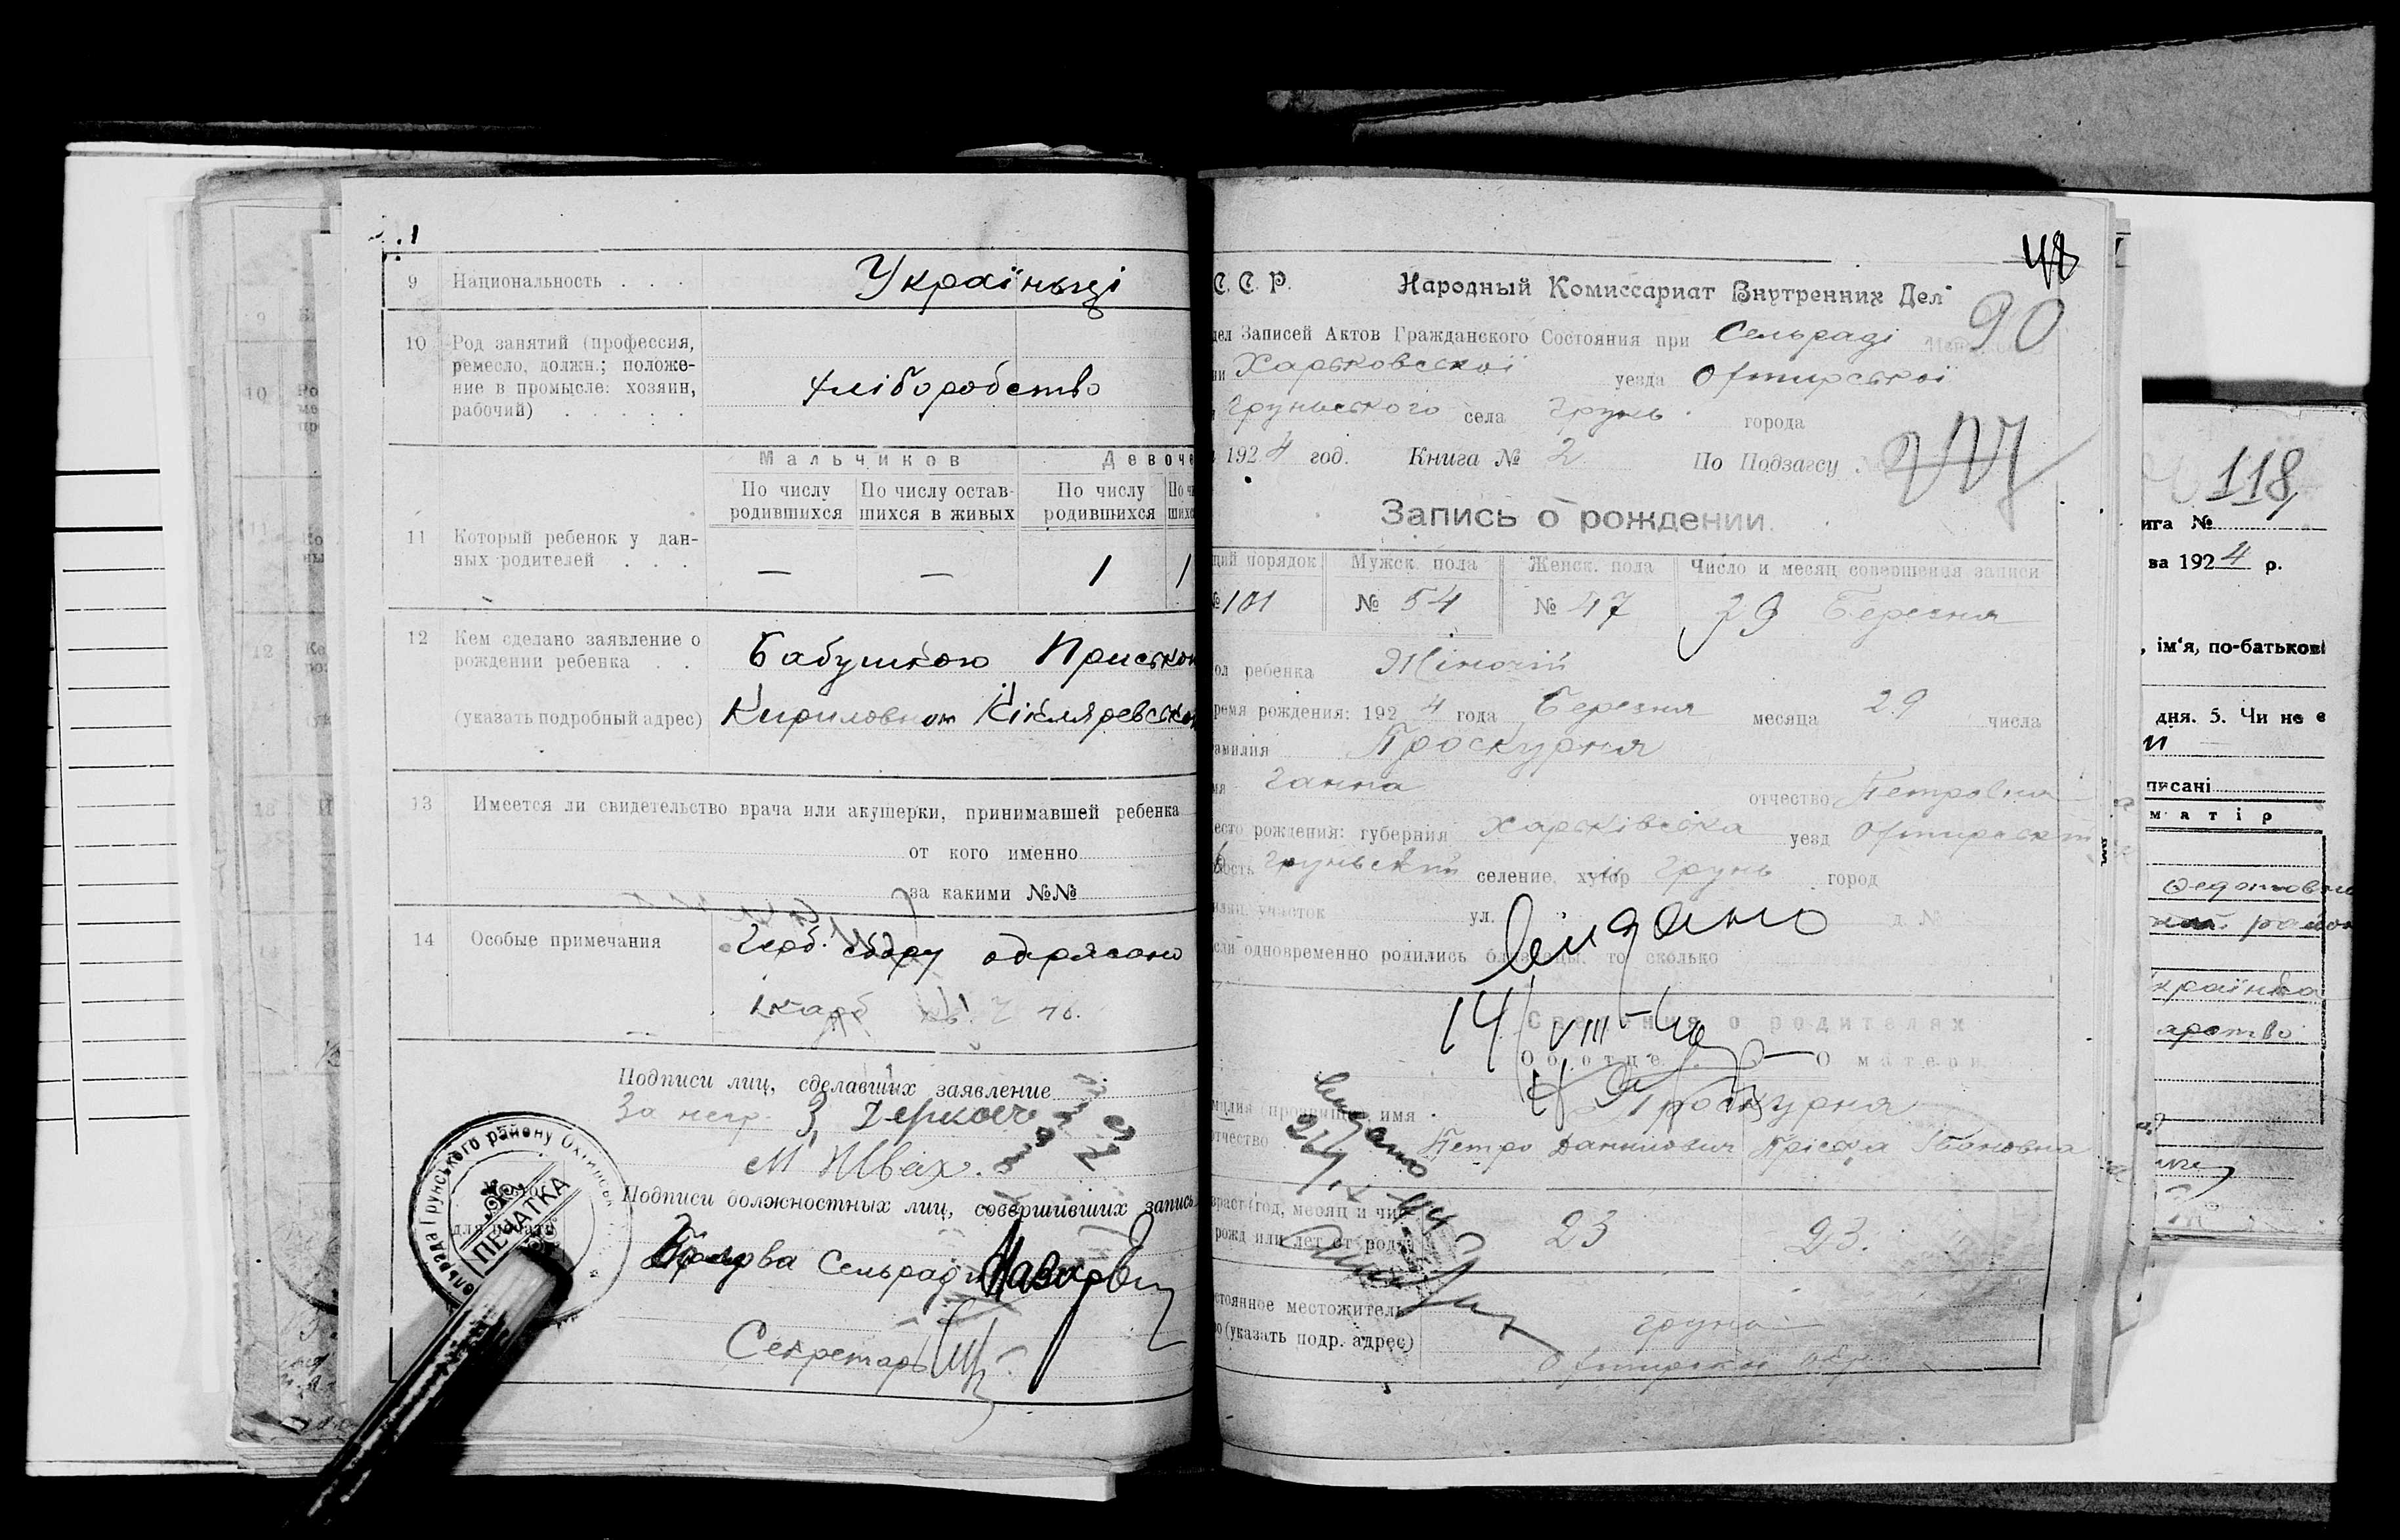 9 Национальность . . . Україньці
10 Род занятий (профессия,
ремесло, должн.; положе-
ние в промысле: хозяин,
рабочий) . . . . .
хліборобство
Мальчиков Девоче
По числу родившихся По числу остав- шихся в живых По числу родившихся
11 Который ребенок у дан-
ных родителей . . .
— — 1 1
12 Кем сделано заявление о
рождении ребенка . .
Бабушкою Приською
(указать подробный адрес) Кириловною
13 Имеется ли свидетельство врача или акушерки, принимавшей ребенка
от кого именно
за какими №№
14 Особые примечания
Герб. сбору
Подписи лиц, сделавших заявление
За негр. З. Деркач
М Швах.
Подписи должностных лиц, совершивших запись
Голова Сельради
Секретарь
ПЕЧАТКА
48
С. С. Р. Народный Комиссариат Внутренних Дел
90
дел Записей Актов Гражданского Состояния при Сельраді
ии Харьковської уезда Охтирської
Груньського села Грунь города
1924 год. Книга № 2 По Подзагсу
Запись о рождении.
щий порядок Мужск. пола Женск. пола Число и месяц совершения записи
№ 101 № 54 № 47 29 Березня
ол ребенка Жіночій
ремя рождения: 1924 года Березня месяца 29 числа
амилия Проскурня
мя Ганна отчество Петровна
есто рождения: губерния Харьківська уезд Охтирский
ость Груньский селение, хутор Грунь город
участок ул. д. №
видано
сли одновременно родились близнецы, то сколько
14/VIII-
Сведения о родителях
Об отце О матери
милия (прозвище) имя
Проскурня
отчество Петро Данилович Пріська Івановна
видано
озраст (год, месяц и чис
рожд или лет от роду)
23 23.
стоянное местожитель-
во (указать подр. адрес)
Грунь
118
ига №
ва 1924 р.
, ім'я, по-батькові
дня. 5. Чи не е
писані
матір
Федотовна
країнка